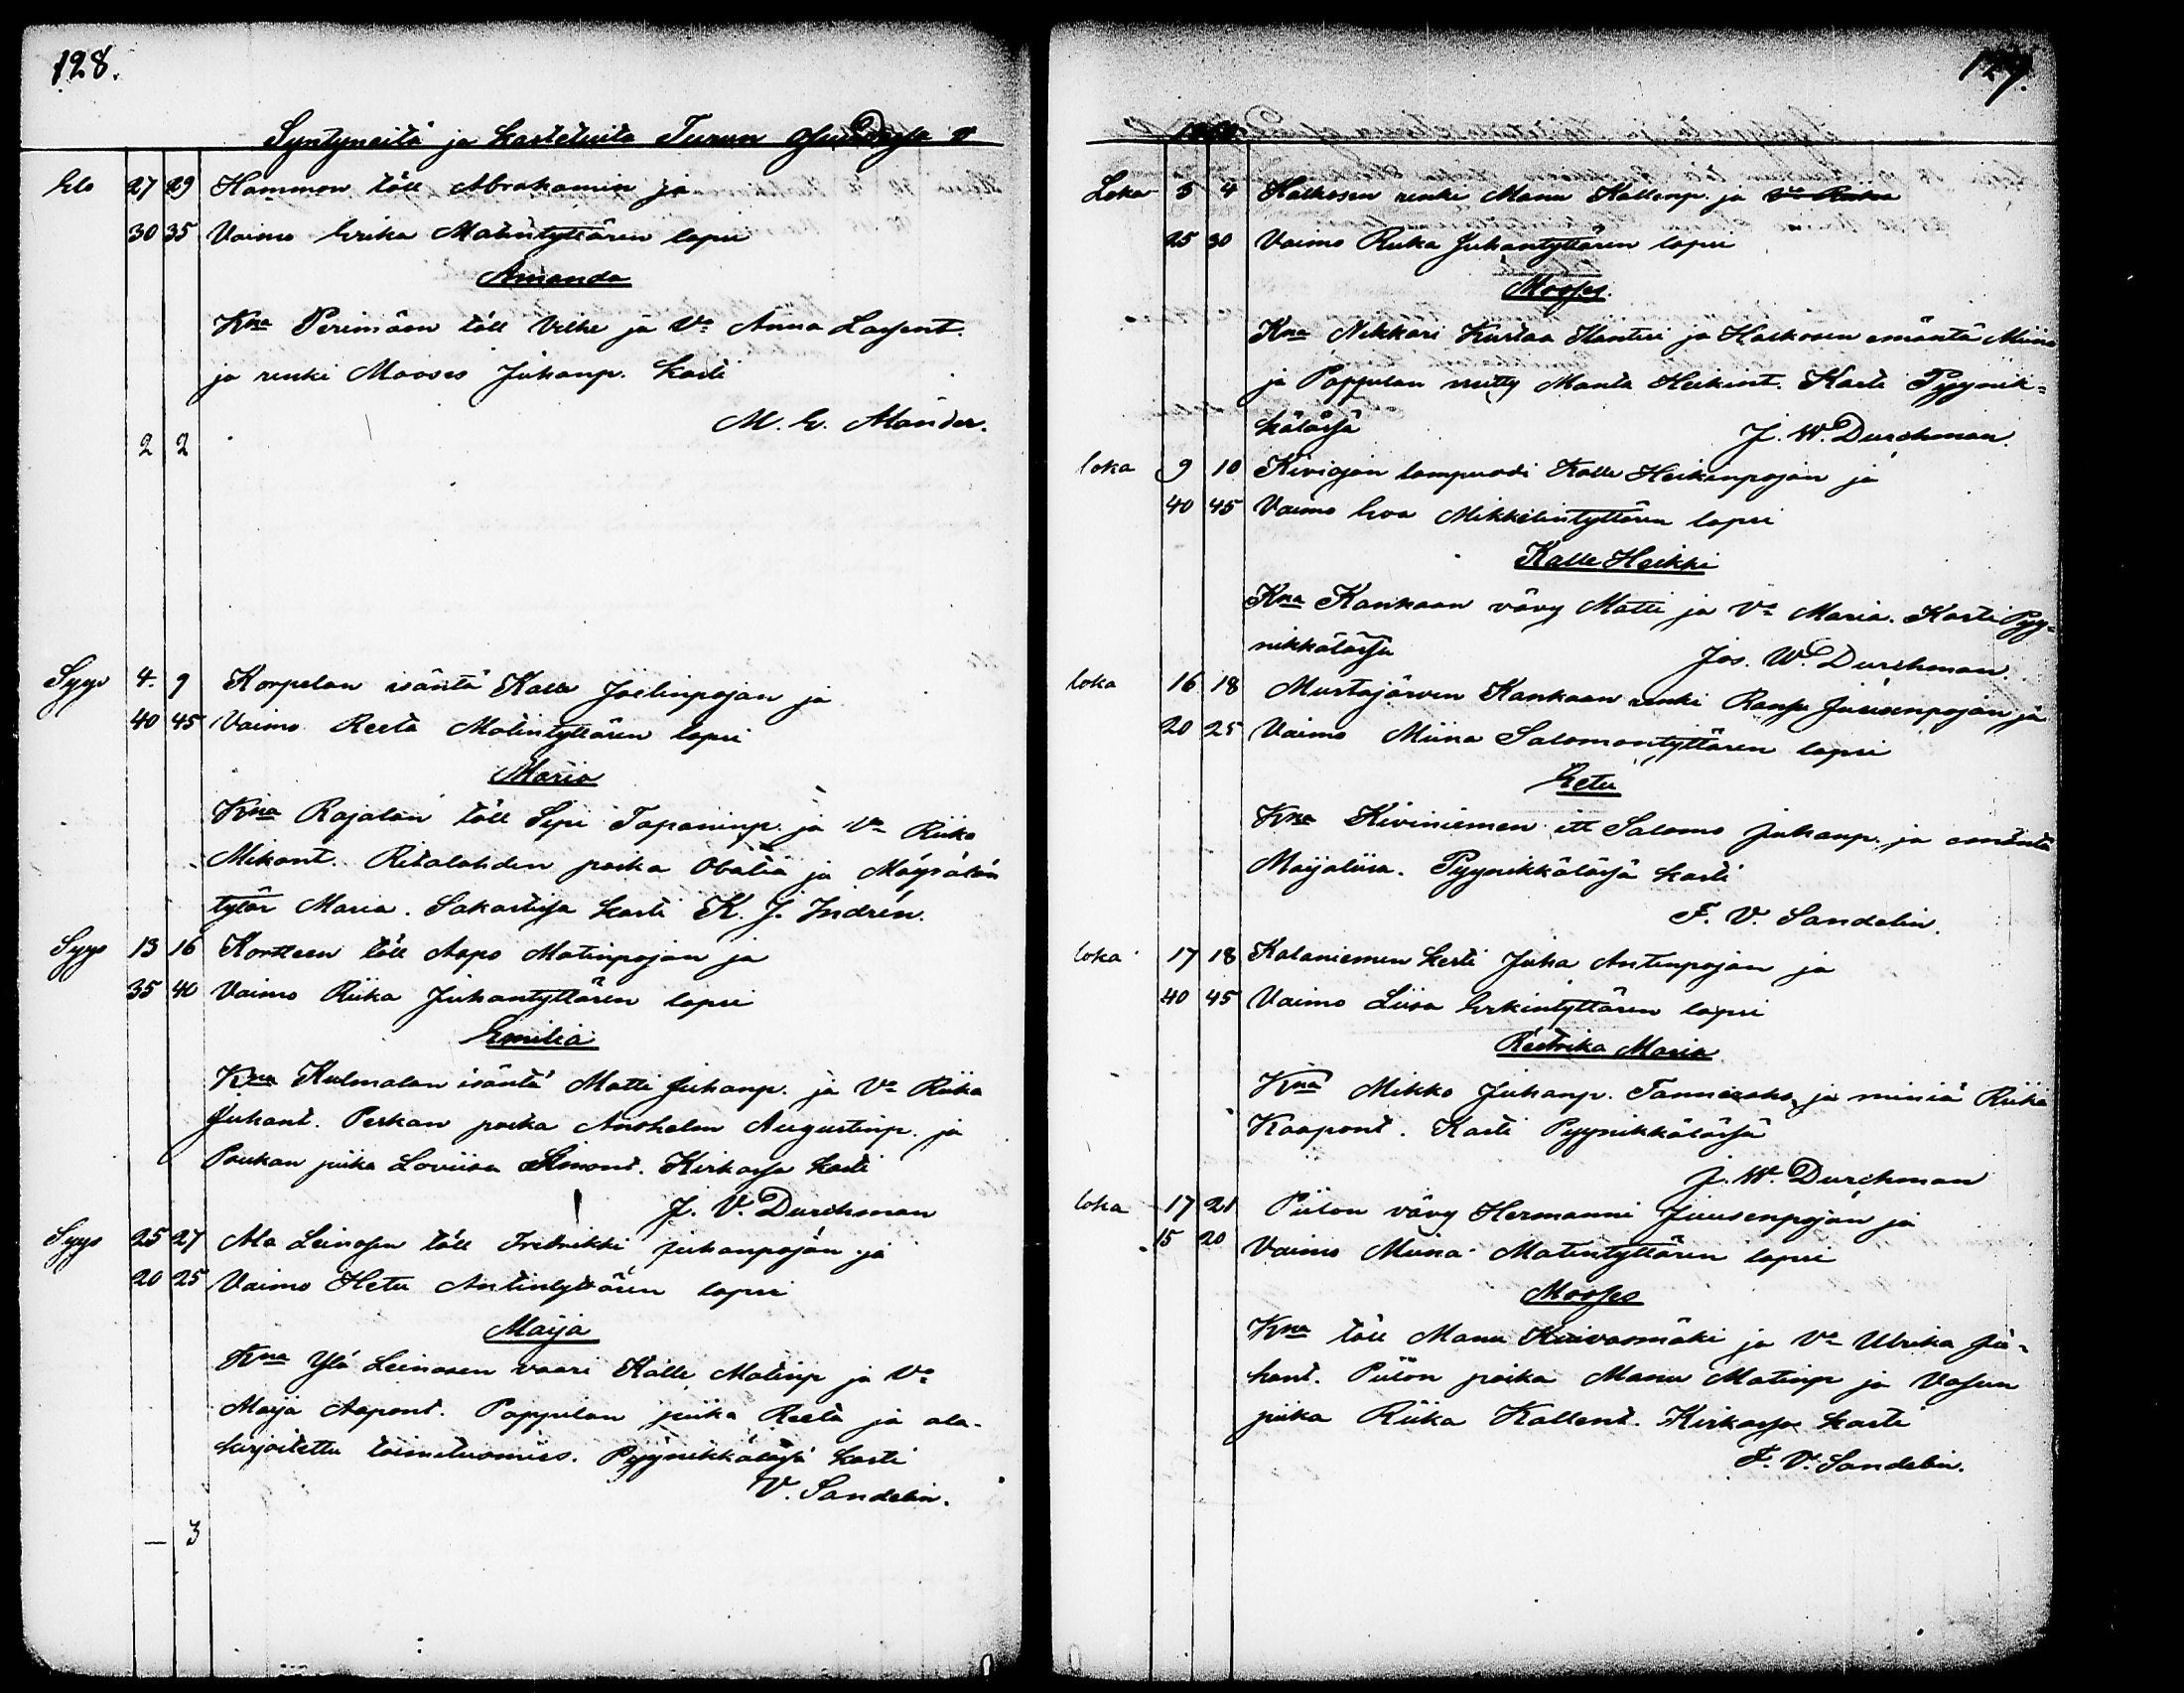 128.
Syntyneitä ja kastetuita Turun
Elo 27 29 Hammon töll Abrahamin ja
30 35 Vaimo Erika Matintyttären lapsi
Amanda
Kna Perimäen töll Vilhe ja Vo Anna
ja renki Mooses Juhanp. kasti
M. E. Mänder.
2 2
Syys 4. 9 Korpelan isäntä Kalle Joelinpojan ja
40 45 Vaimo Reeta Matintyttären lapsi
Maria
Kna Rajalan töll Sipi Tapaninp. ja Vo Riika
Mikant. Ritalahden poika Obatia ja Mäysälän
tytär Maria. Sakastissa kasti K. J. Indrén.
Syys 13 16 Kortteen töll Aapo Matinpojan ja
35 40 Vaimo Riika Juhantyttären lapsi
Emilia
Kna Kulmalan isäntä Matti Juhanp. ja Vo Riika
Juhant. Perkan poika Anshelm Augustinp. ja
Paukan piika Loviisa Simont. Kirkossa kasti
J. V. Durchman
Syys 25 27 Ala Leinosen töll Fredrikki Juhanpojan ja
20 25 Vaimo Hetu Antintyttären lapsi
Maija
Kna Ylä Leinosen vaari Kalle Matinp ja Vo
Maija Aapont. Pappilan piika Reeta ja ala-
kirjoitettu toimitusmies. Pyynikkälässä kasti
V. Sandelin.
— 3
Loka 3 4 Halkosen renki Manu Kallenp. ja Vo Riika
25 30 Vaimo Riika Juhantyttären lapsi
Mooses.
Kna Nikkari Kustaa Hanteri ja Halkosen emäntä Miina
ja Pappilan Manta Heikint. Kasti Pyynik-
kälässä J. W. Durchman.
loka 9 10 Kiviojan lampuodi Kalle Heikinpojan ja
40 45 Vaimo Eva Mikkelintyttären lapsi
Kalle Heikki
Kna Kankaan vävy Matti ja Vo Maria. Kasti Pyy-
nikkälässä Jos. W. Durchman.
loka 16 18 Mustajärven Kankaan renki Ranssu Juusenpojan ja
20 25 Vaimo Miina Salomontyttären lapsi
Eetu
Kna Kiviniemen itt Salomo Juhanp. ja emäntä
Maijaliisa. Pyynikkälässä kasti
F. V. Sandelin.
loka 17 18 Kalaniemen Kesti Juha Antinpojan ja
40 45 Vaimo Liisa Erkintyttären lapsi
Reetrika Maria
Kna Mikko Juhanp. ja miniä Riika
Kaapont. Kasti Pyynikkälässä
J. W. Durchman
loka 17 21 Piilon vävy Hermanni Juusenpojan ja
15 20 Vaimo Miina Matintyttären lapsi
Mooses
Kna töll Manu Kuivasmäki ja Vo Ulrika Ju-
hant. Piilon poika Manu Matinp ja Vasun
piika Riika Kallent. Kirkossa kasti
F. V. Sandelin.